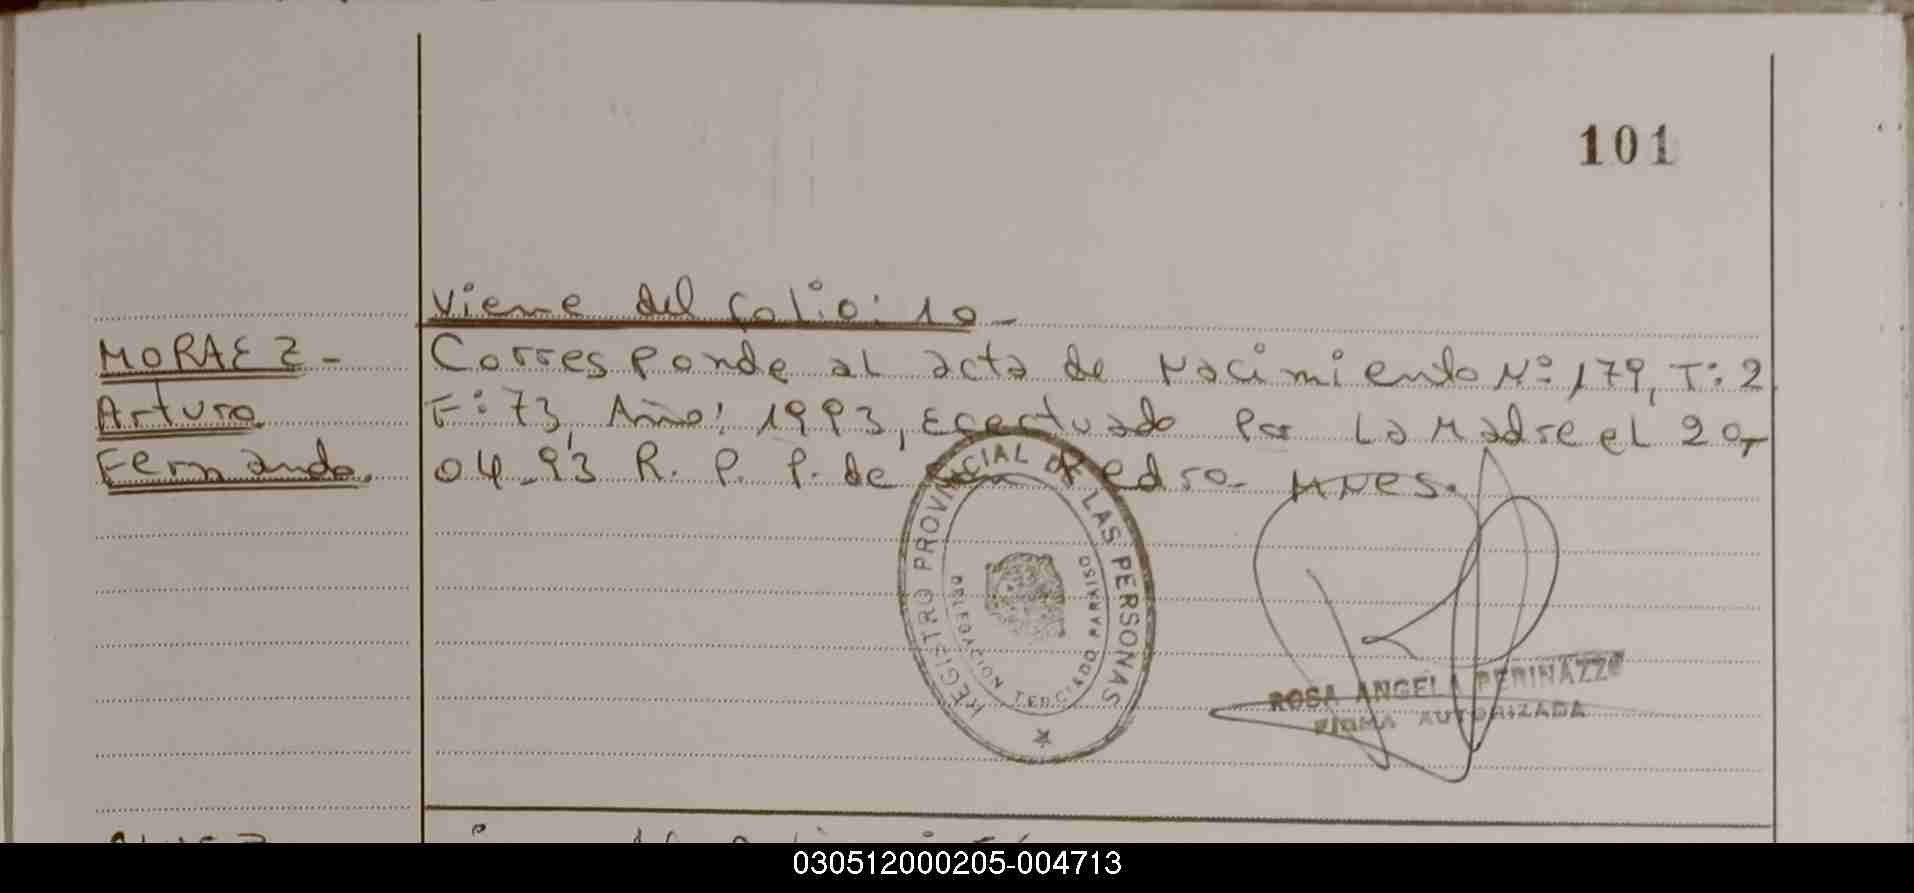 101
Viene del folio: 10-
MORAEZ- Corresponde al acta de Nacimiento Nº 179, T: 2
Arturo F: 73, Año: 1993, Efectuado Por La Madre el 20-
Fernando. 04-93 R. P. P. de Pedro- MNES.
REGISTRO PROVINCIAL DE LAS PERSONAS
DELEGACION TERCIADO PARAISO
ROSA ANGELA PERINAZZO
FIRMA AUTORIZADA
030512000205-004713